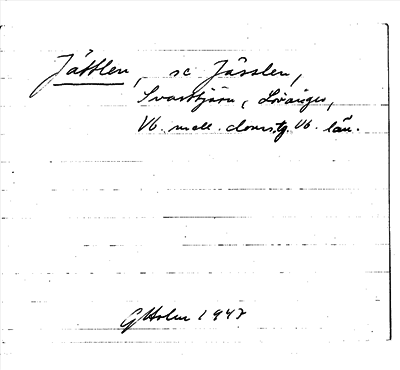 Jättlen, sc Jässlen,
Svarttjärn, Lövånger,
Vb. mell. doms.tg. Vb. län.
G Holm 1947